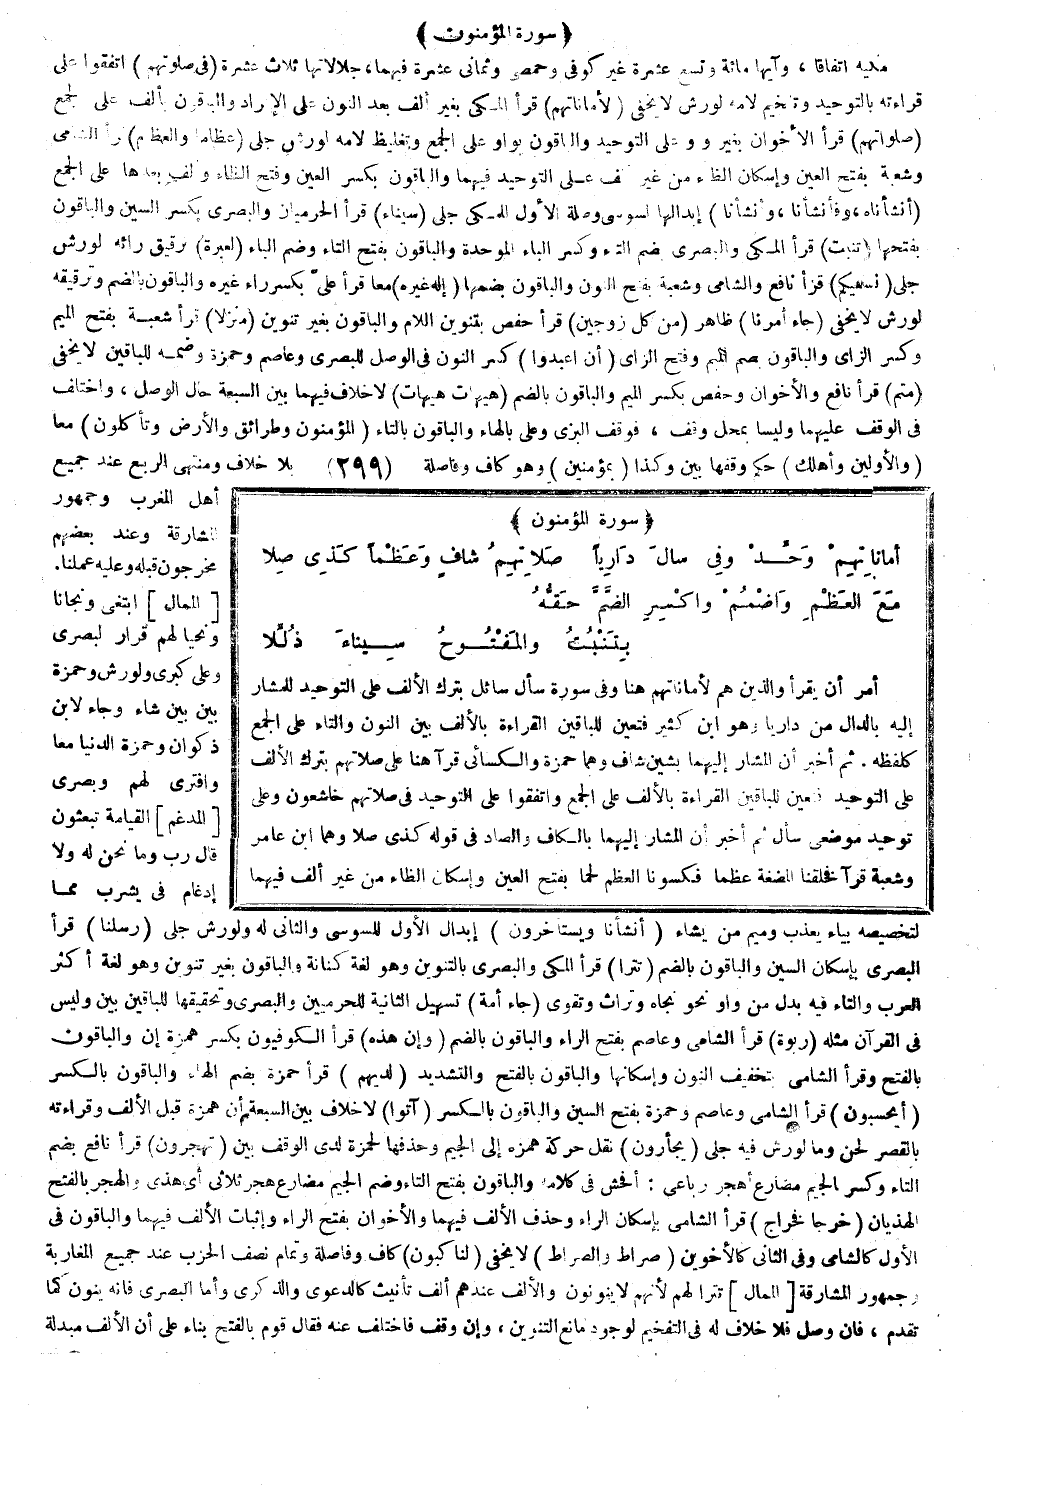 ﴿ سورة المؤمنون ﴾
مكية اتفاقا ، وآيها مائة وتسع عشرة غير كوفى وحمصى وثمانى عشرة فيهما، جلالاتها ثلاث عشرة (فى صلوتهم) اتفقوا على
قراءته بالتوحيد وتفخيم لامه لورش لايخفى (لأماناتهم) قرأ المكى بغير ألف بعد النون على الإفراد والباقون بألف على الجمع
(صلواتهم) قرأ الأخوان بغير واو على التوحيد والباقون بواو على الجمع وتغليظ لامه لورش جلى (عظاما والعظام) قرأ الشامى
وشعبة بفتح العين وإسكان الظاء من غير ألف على التوحيد فيهما والباقون بكسر العين وفتح الظاء وألف بعدها على الجمع
(أنشأناه، وفأنشأنا ، وأنشأنا ) إبدالها لسوسى وصلة الأول للمكى جلى (سيناء) قرأ الحرميان والبصرى بكسر السين والباقون
بفتحها (تنبت) قرأ المكى والبصرى بضم التاء وكسر الباء الموحدة والباقون بفتح التاء وضم الباء (لعبرة) ترقيق رائه لورش
جلى( نسقيكم) قرأ نافع والشامى وشعبة بفتح النون والباقون بضمها (إله غيره) معا قرأ علىّ بكسر راء غيره والباقون بالضم وترقيقه
لورش لايخفى (جاء أمرنا ) ظاهر (من كل زوجين) قرأ حفص بتنوين اللام والباقون بغير تنوين (منزلا) قرأ شعبة بفتح الميم
وكسر الزاى والباقون بضم الميم وفتح الزاى (أن اعبدوا ) كسر النون فى الوصل للبصرى وعاصم وحمزة وضمه للباقين لايخفى
(متم) قرأ نافع والأخوان وحفص بكسر الميم والباقون بالضم (هيهات هيهات) لاخلاف فيهما بين السبعة حال الوصل ، واختلف
فى الوقف عليهما وليسا بمحل وقف ، فوقف البزى وعلى بالهاء والباقون بالتاء ( المؤمنون وطرائق والأرض وتأكلون ) معا
( والأولين وأهلك ) حكم وقفها بين وكذا ( بمؤمنين ) وهو كاف وفاصلة (٢٩٩) بلا خلاف ومنتهى الربع عند جميع
أهل المغرب وجمهور
المشارقة وعند بعضهم
مخرجون قبله وعليه عملنا.
[ الممال ] ابتغى ونجانا
ونحيا لهم قرار لبصرى
وعلى كبرى ولورش وحمزة
بين بين شاء وجاء لابن
ذكوان وحمزة الدنيا معا
وافترى لهم وبصرى
[ المدغم ] القيامة تبعثون
قال رب وما نحن له ولا
إدغام فى يشرب مما
﴿ سورة المؤمنون ﴾
أماناتِهِمْ وَحِّدْ وفي سالَ دَارِياً صَلاتِهِمُ شافٍ وَعَظْماً كَذِي صِلا
مَعَ العَظْمِ وَاضْمُمْ واكْسِرِ الضَّمَّ حَقُّهُ
بِتَنْبُتُ والمَفْتُوحُ سِيناءَ ذُلِّلا
أمر أن يقرأ والذين هم لأماناتهم هنا وفى سورة سأل سائل بترك الألف على التوحيد للمشار
إليه بالدال من داريا وهو ابن كثير فتعين للباقين القراءة بالألف بين النون والتاء على الجمع
كلفظه . ثم أخبر أن المشار إليهما بشين شاف وهما حمزة والكسائى قرآ هنا على صلاتهم بترك الألف
على التوحيد فتعين للباقين القراءة بالألف على الجمع واتفقوا على التوحيد فى صلاتهم خاشعون وعلى
توحيد موضعى سأل ثم أخبر أن المشار إليهما بالكاف والصاد فى قوله كذى صلا وهما ابن عامر
وشعبة قرآ فخلقنا المضغة عظما فكسونا العظم لحما بفتح العين وإسكان الظاء من غير ألف فيهما
لتخصيصه بباء يعذب وميم من يشاء ( أنشأنا ويستأخرون ) إبدال الأول للسوسى والثانى له ولورش جلى (رسلنا ) قرأ
البصرى بإسكان السين والباقون بالضم (تترا) قرأ المكى والبصرى بالتنوين وهو لغة كنانة والباقون بغير تنوين وهو لغة أكثر
العرب والتاء فيه بدل من واو نحو تجاه وتراث وتقوى (جاء أمة) تسهيل الثانية للحرميين والبصرى وتحقيقها للباقين بين وليس
فى القرآن مثله (ربوة) قرأ الشامى وعاصم بفتح الراء والباقون بالضم ( وإن هذه) قرأ الكوفيون بكسر همزة إن والباقون
بالفتح وقرأ الشامى بتخفيف النون وإسكانها والباقون بالفتح والتشديد ( لديهم ) قرأ حمزة بضم الهاء والباقون بالكسر
( أيحسبون ) قرأ الشامى وعاصم وحمزة بفتح السين والباقون بالكسر ( آتوا) لاخلاف بين السبعة أن همزة قبل الألف وقراءته
بالقصر لحن وما لورش فيه جلى ( يجأرون ) نقل حركة همزه إلى الجيم وحذفها لحمزة لدى الوقف بين ( تهجرون) قرأ نافع بضم
التاء وكسر الجيم مضارع أهجر رباعى : أفحش فى كلامه والباقون بفتح التاء وضم الجيم مضارع هجر ثلاثى أى هذى والهجر بالفتح
الهذيان (خرجا فخراج ) قرأ الشامى بإسكان الراء وحذف الألف فيهما والأخوان بفتح الراء وإثبات الألف فيهما والباقون فى
الأول كالشامى وفى الثانى كالأخوين ( صراط والصراط ) لايخفى (لناكبون) كاف وفاصلة وتمام نصف الحزب عند جميع المغاربة
وجمهور المشارقة [ الممال ] تترا لهم لأنهم لاينونون والألف عندهم ألف تأنيث كالدعوى والذكرى وأما البصرى فانه ينون كما
تقدم ، فان وصل فلا خلاف له فى التفخيم لوجود مانع التنوين ، وإن وقف فاختلف عنه فقال قوم بالفتح بناء على أن الألف مبدلة